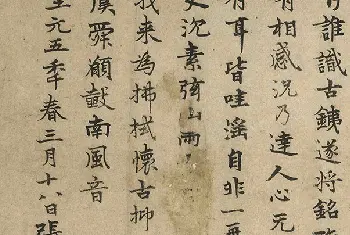 誰識古銕遂將銘
有相感況乃達人心元
有耳皆哇滛自非一再
沉素弦山雨
我来為拂拭懷古抑
虞舜願皷南風音
至元五季春三月十八日張